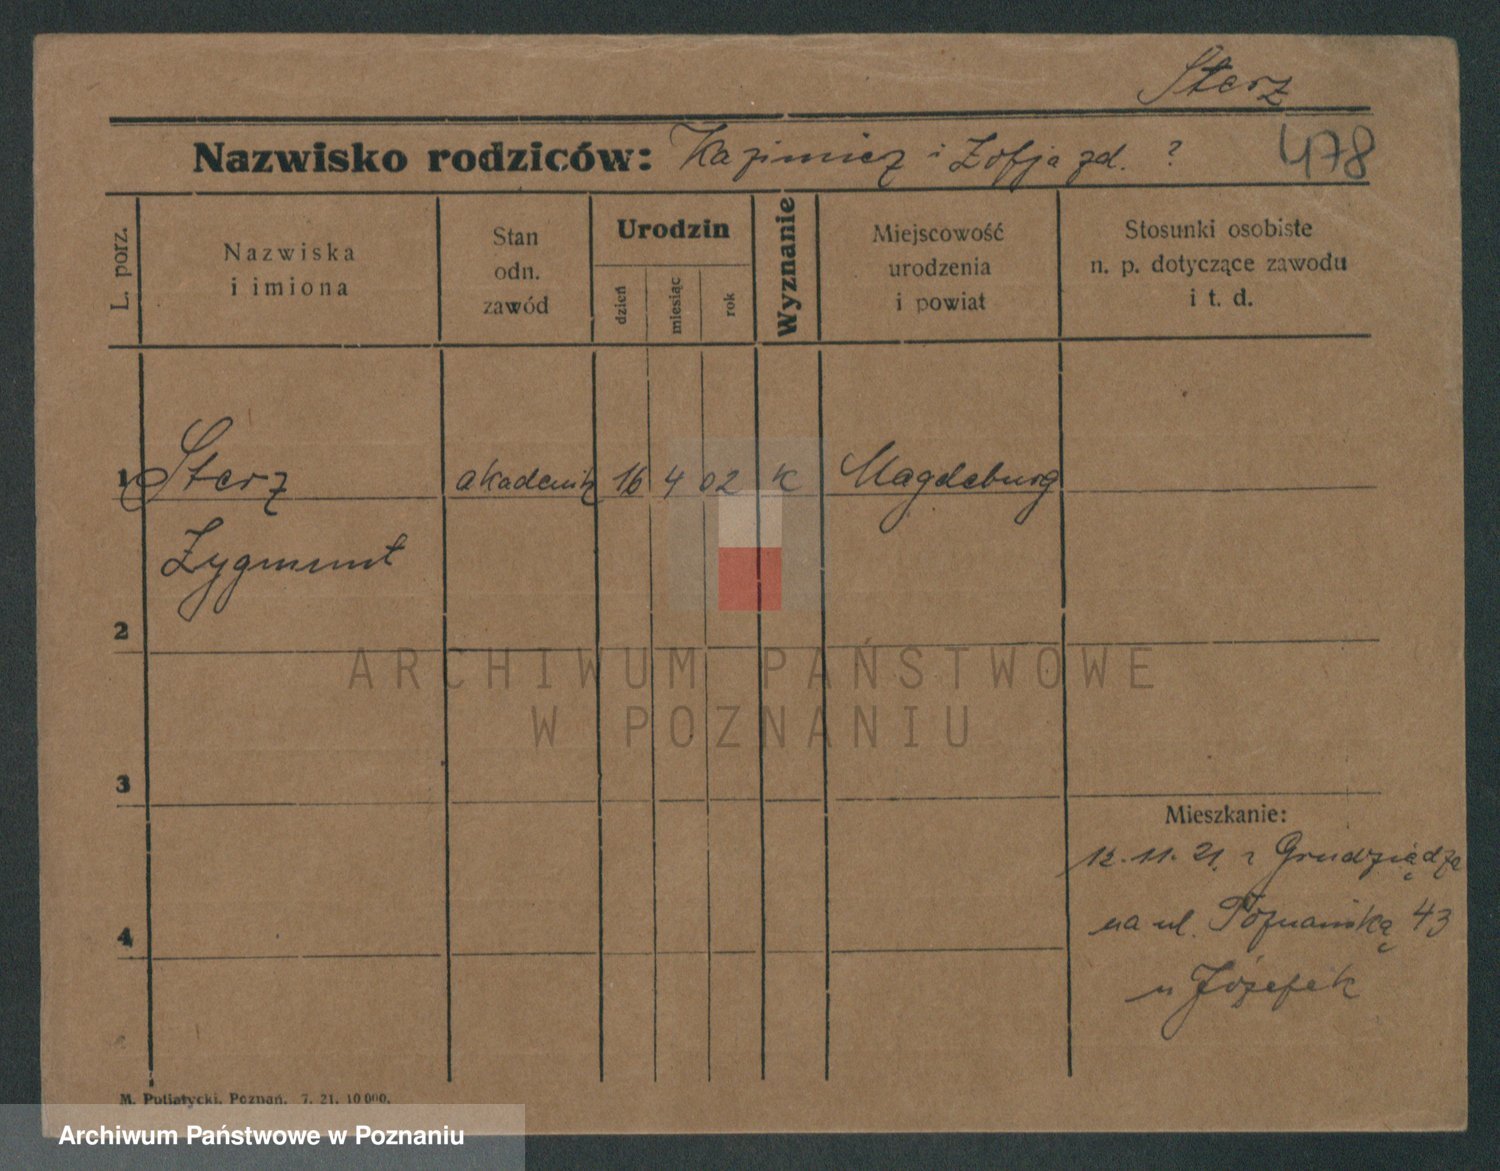 Sterz
Nazwisko rodziców: Kazimierz i Zofja zd. ?
478
L. porz.
Nazwiska
i imiona
Stan
odn.
zawód
Urodzin
dzień
miesiąc
rok
Wyznanie
Miejscowość
urodzenia
i powiat
Stosunki osobiste
n. p. dotyczące zawodu
i t. d.
1 Sterz akademik 16 4 02 k Magdeburg
Zygmunt
2
ARCHIWUM PAŃSTWOWE
W POZNANIU
3
Mieszkanie:
12.11.21. z Grudziądza
na ul. Poznańską 43
4
u Józefek
M. Putiatycki, Poznań. 7. 21. 10 000.
Archiwum Państwowe w Poznaniu